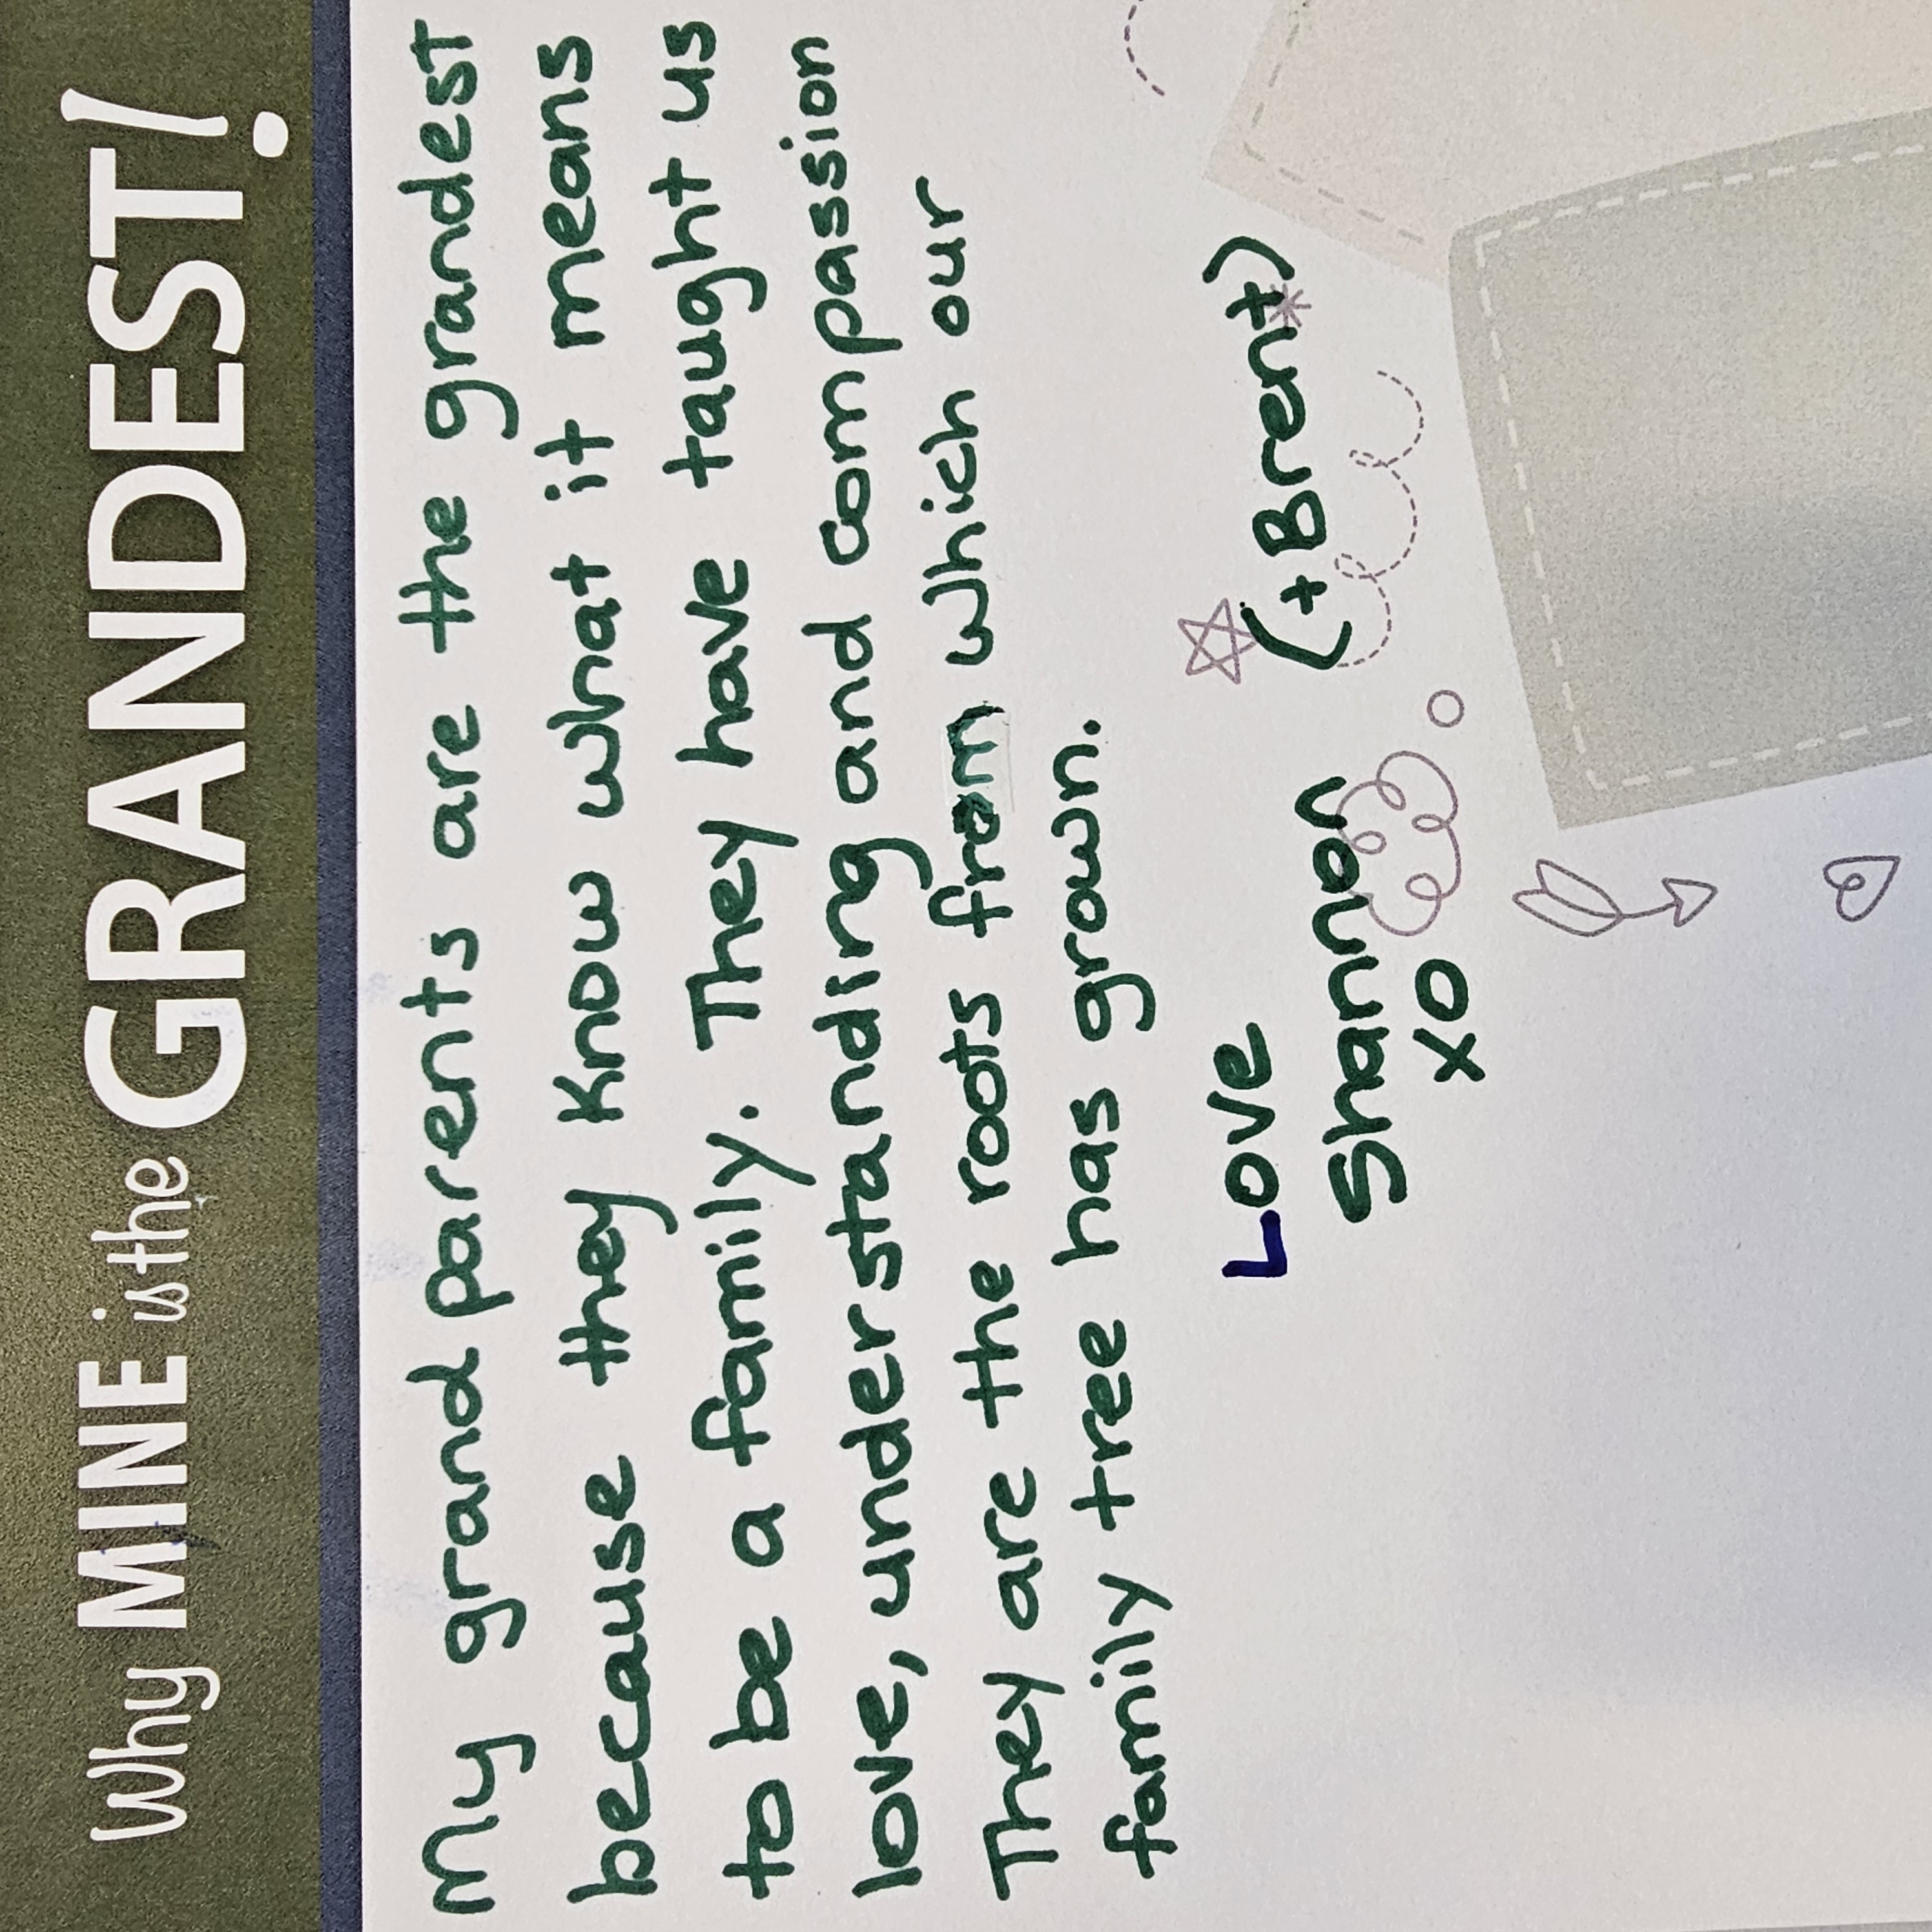 Why MINE is the GRANDEST!
My grandparents are the grandest
because they know what it means
to be a family. They have taught us
love, understanding and compassion
They are the roots from which our
family tree has grown.
Love
Shannon (+Brent)
XO